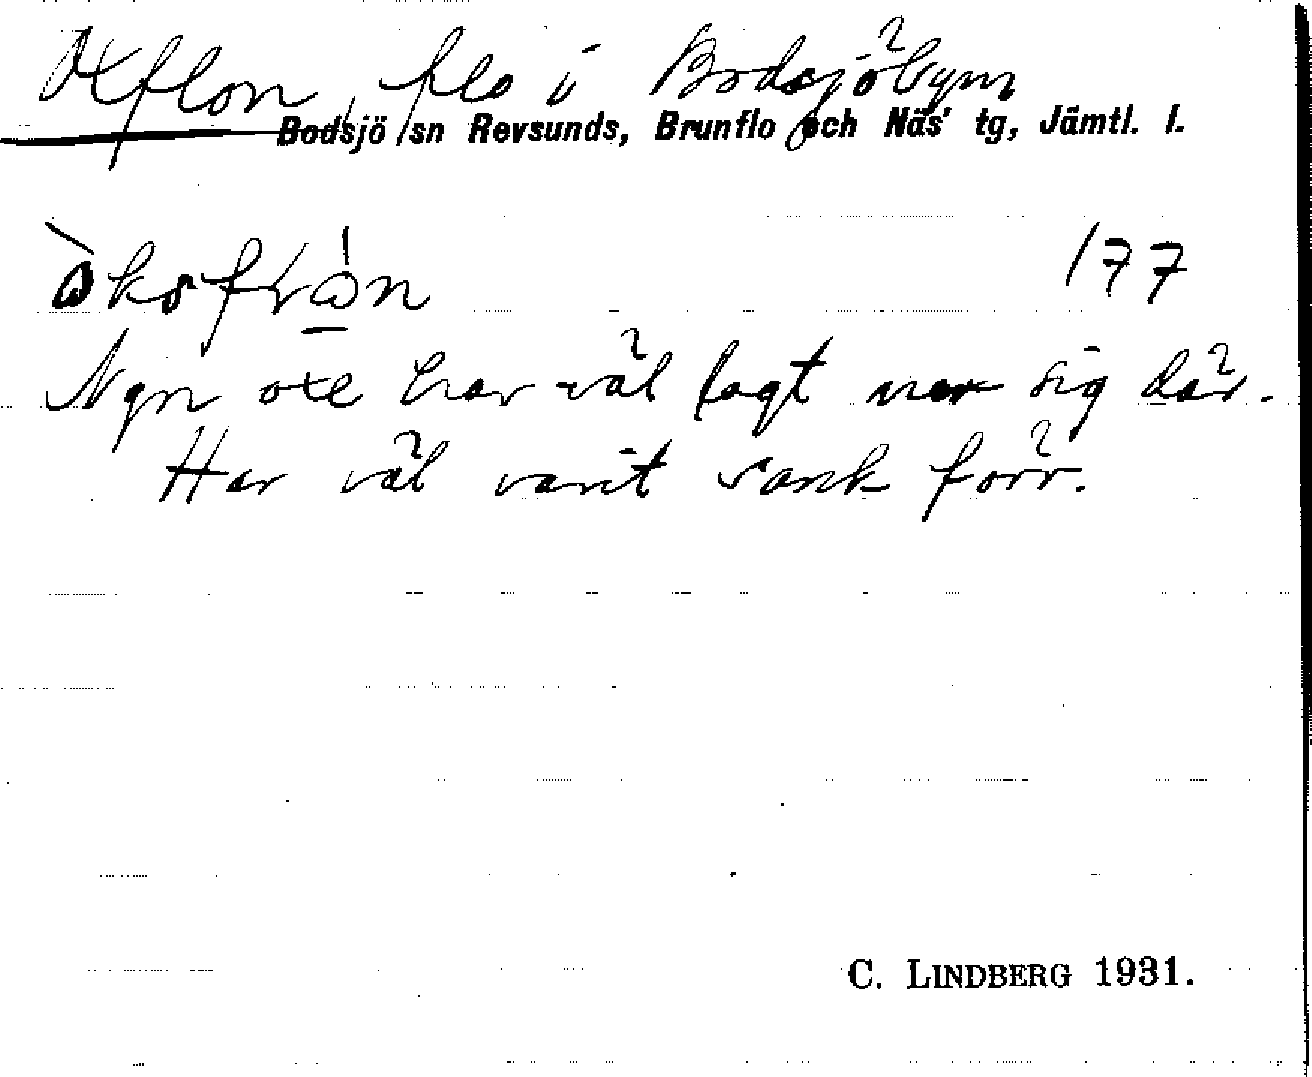 Oxflon, flo i Bodsjöbyn
Bodsjö sn Revsunds, Brunflo och Näs' tg, Jämtl. l.
177
Ngn oxe har väl lagt ner sig där.
Har väl varit sank förr.
C. LINDBERG 1931.